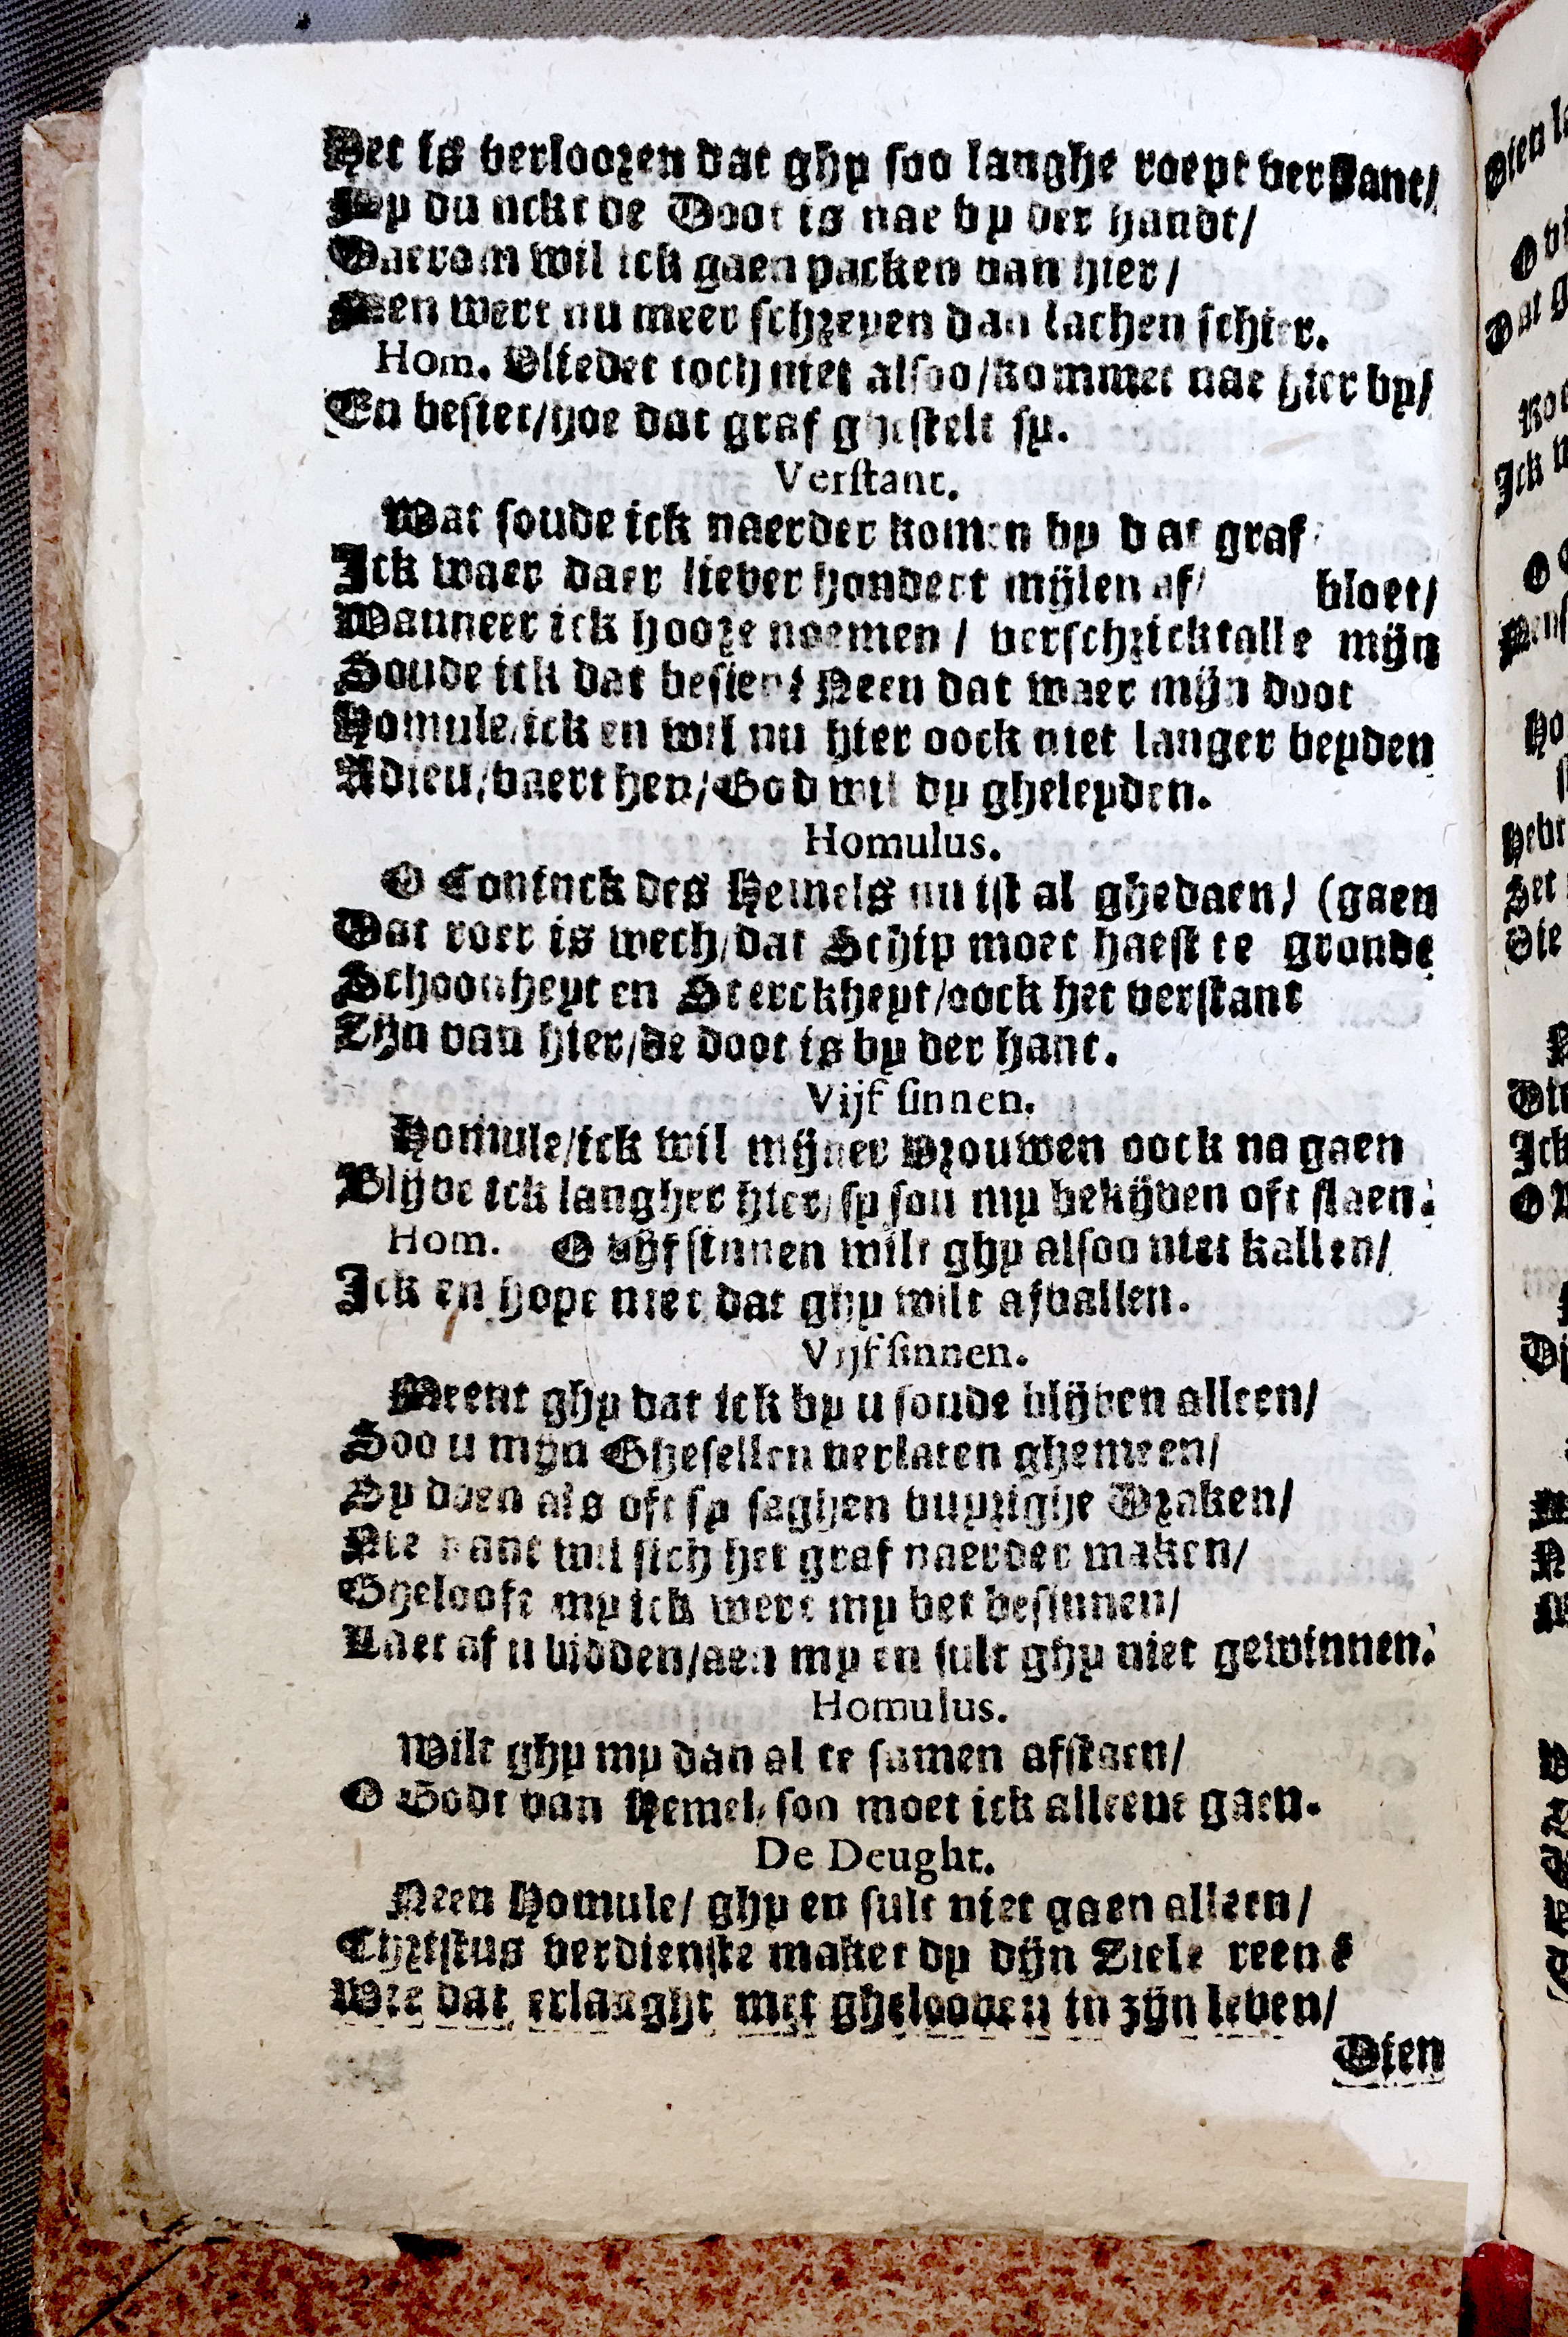 Het is verloozen dat ghy soo langhe roept verstant/
My dunckt de Doot is nae by der handt/
Daerom wil ick gaen packen van hier/
Men wert nu meer schreyen dan lachen schier.
Hom. Vliedet toch niet alsoo/kommet nae hier by/
En besiet/hoe dat graf ghestelt sy.
Verstant.
Wat soude ick naerder komen by dat graf
Ick waer daer liever hondert mijlen af/ bloet/
Wanneer ick hoore noemen/ verschrickt alle mijn
Soude ick dat besien? Neen dat waer mijn doot
Homule/ick en wil nu hier oock niet langer beyden
Adieu/vaert hen/God wil dy gheleyden.
Homulus.
O Coninck des Hemels nu ist al ghedaen/ (gaen
Dat roer is wech/dat Schip moet haest te gronde
Schoonheyt en Sterckheyt/oock het verstant
Zijn van hier/de doot is by der hant.
Vijf sinnen.
Homule/ick wil mijner Vrouwen oock na gaen
Blijve ick langher hier/sy sou my bekijven oft slaen.
Hom. O vijf sinnen wilt ghy alsoo niet kallen/
Ick en hope niet dat ghy wilt afvallen.
Vijf sinnen.
Meent ghy dat ick by u soude blijven alleen/
Soo u mijn Ghesellen verlaten ghemeen/
Sy doen als oft sy saghen vuyrighe Draken/
Niemant wil sich het graf naerder maken/
Ghelooft my ick wert my bet besinnen/
Laet af u bidden/aen my en sult ghy niet gewinnen.
Homulus.
Wilt ghy my dan al te samen afstaen/
O Godt van Hemel/ soo moet ick alleene gaen.
De Deught.
Neen Homule/ ghy en sult niet gaen alleen/
Christus verdienste maket dy dijn Ziele reen:
Wie dat erlanght met ghelooven in zijn leven/
Dien